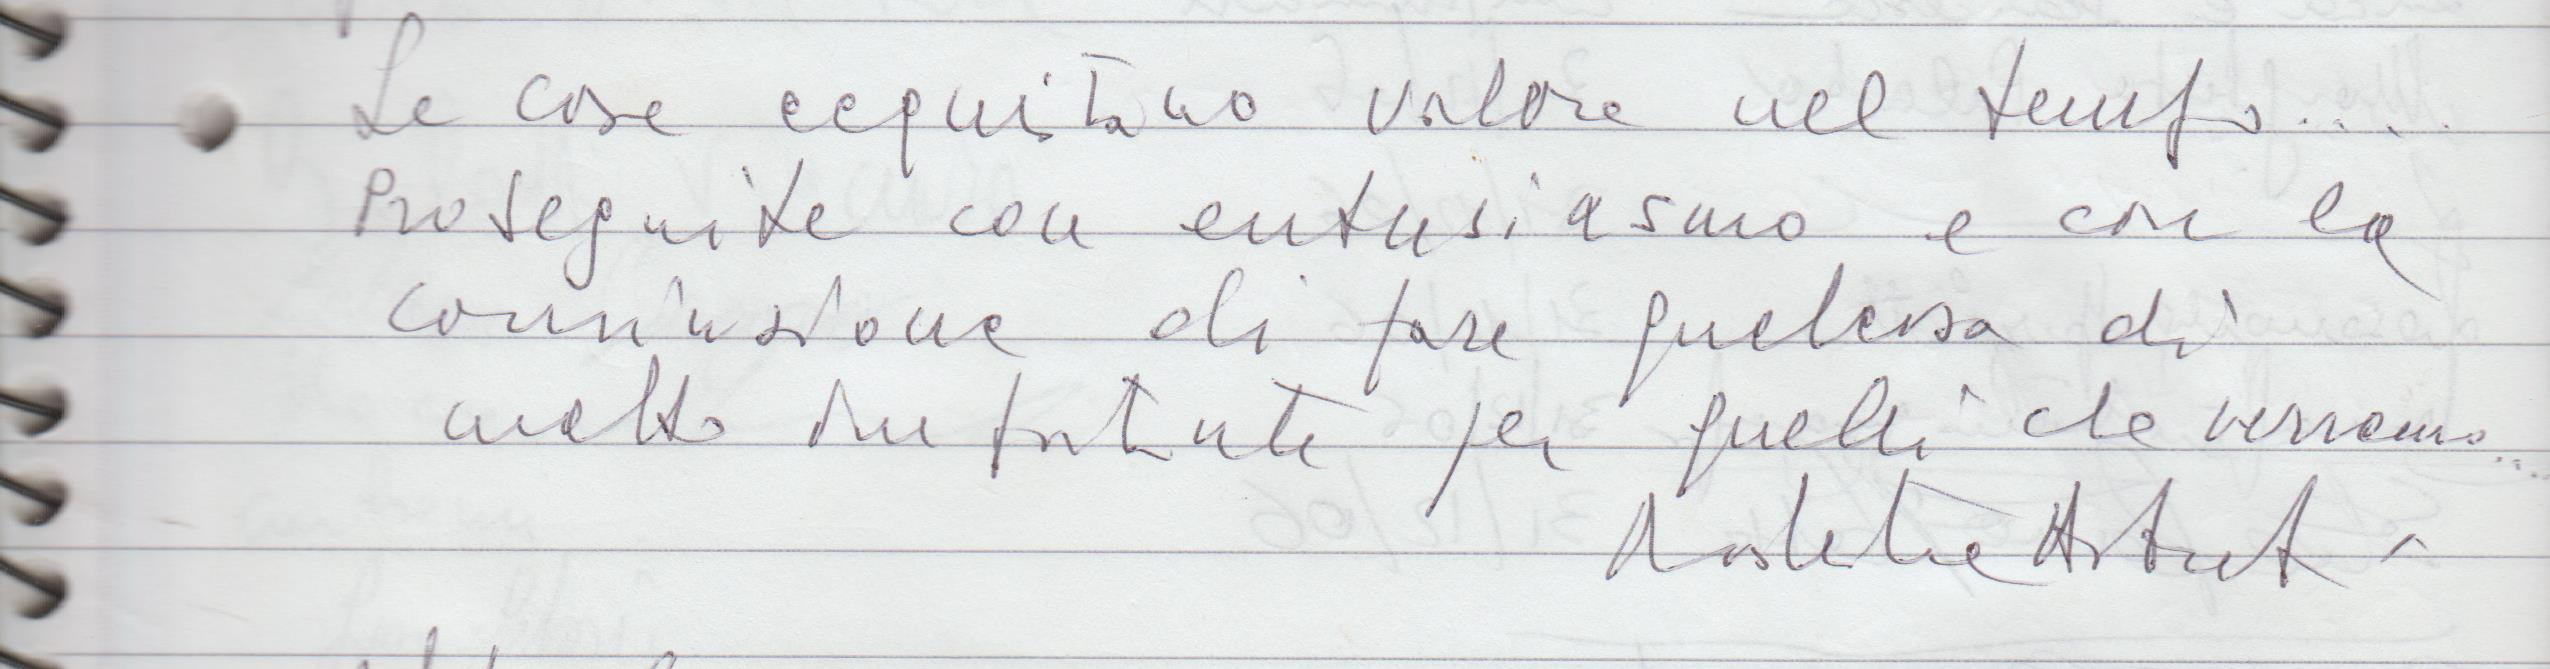 Le cose acquistano valore nel tempo....
Proseguite con entusiasmo e con la
convinzione di fare qualcosa di
molto importante per quelli che verranno....